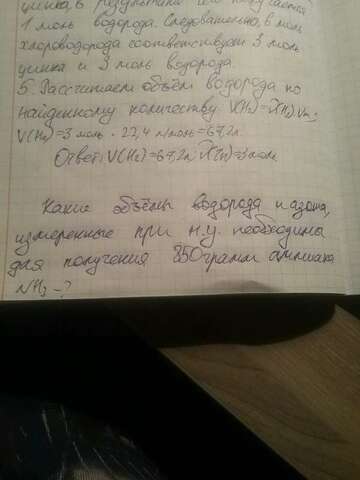 цинка, в результате чего получается
1 моль водорода. Следовательно, 6 моль
хлороводорода соответствует 3 моль
цинка и 3 моль водорода.
5. Рассчитаем объём водорода по
найденному количеству V(H₂)=ν(H₂)·Vm;
V(H₂)=3 моль · 22,4 л/моль=67,2л
Ответ: V(H₂)=67,2л; ν(Zn)=3 моль
Какие объёмы водорода и азота,
измеренные при н.у. необходимы
для получения 850 грамм аммиака
NH₃ – ?